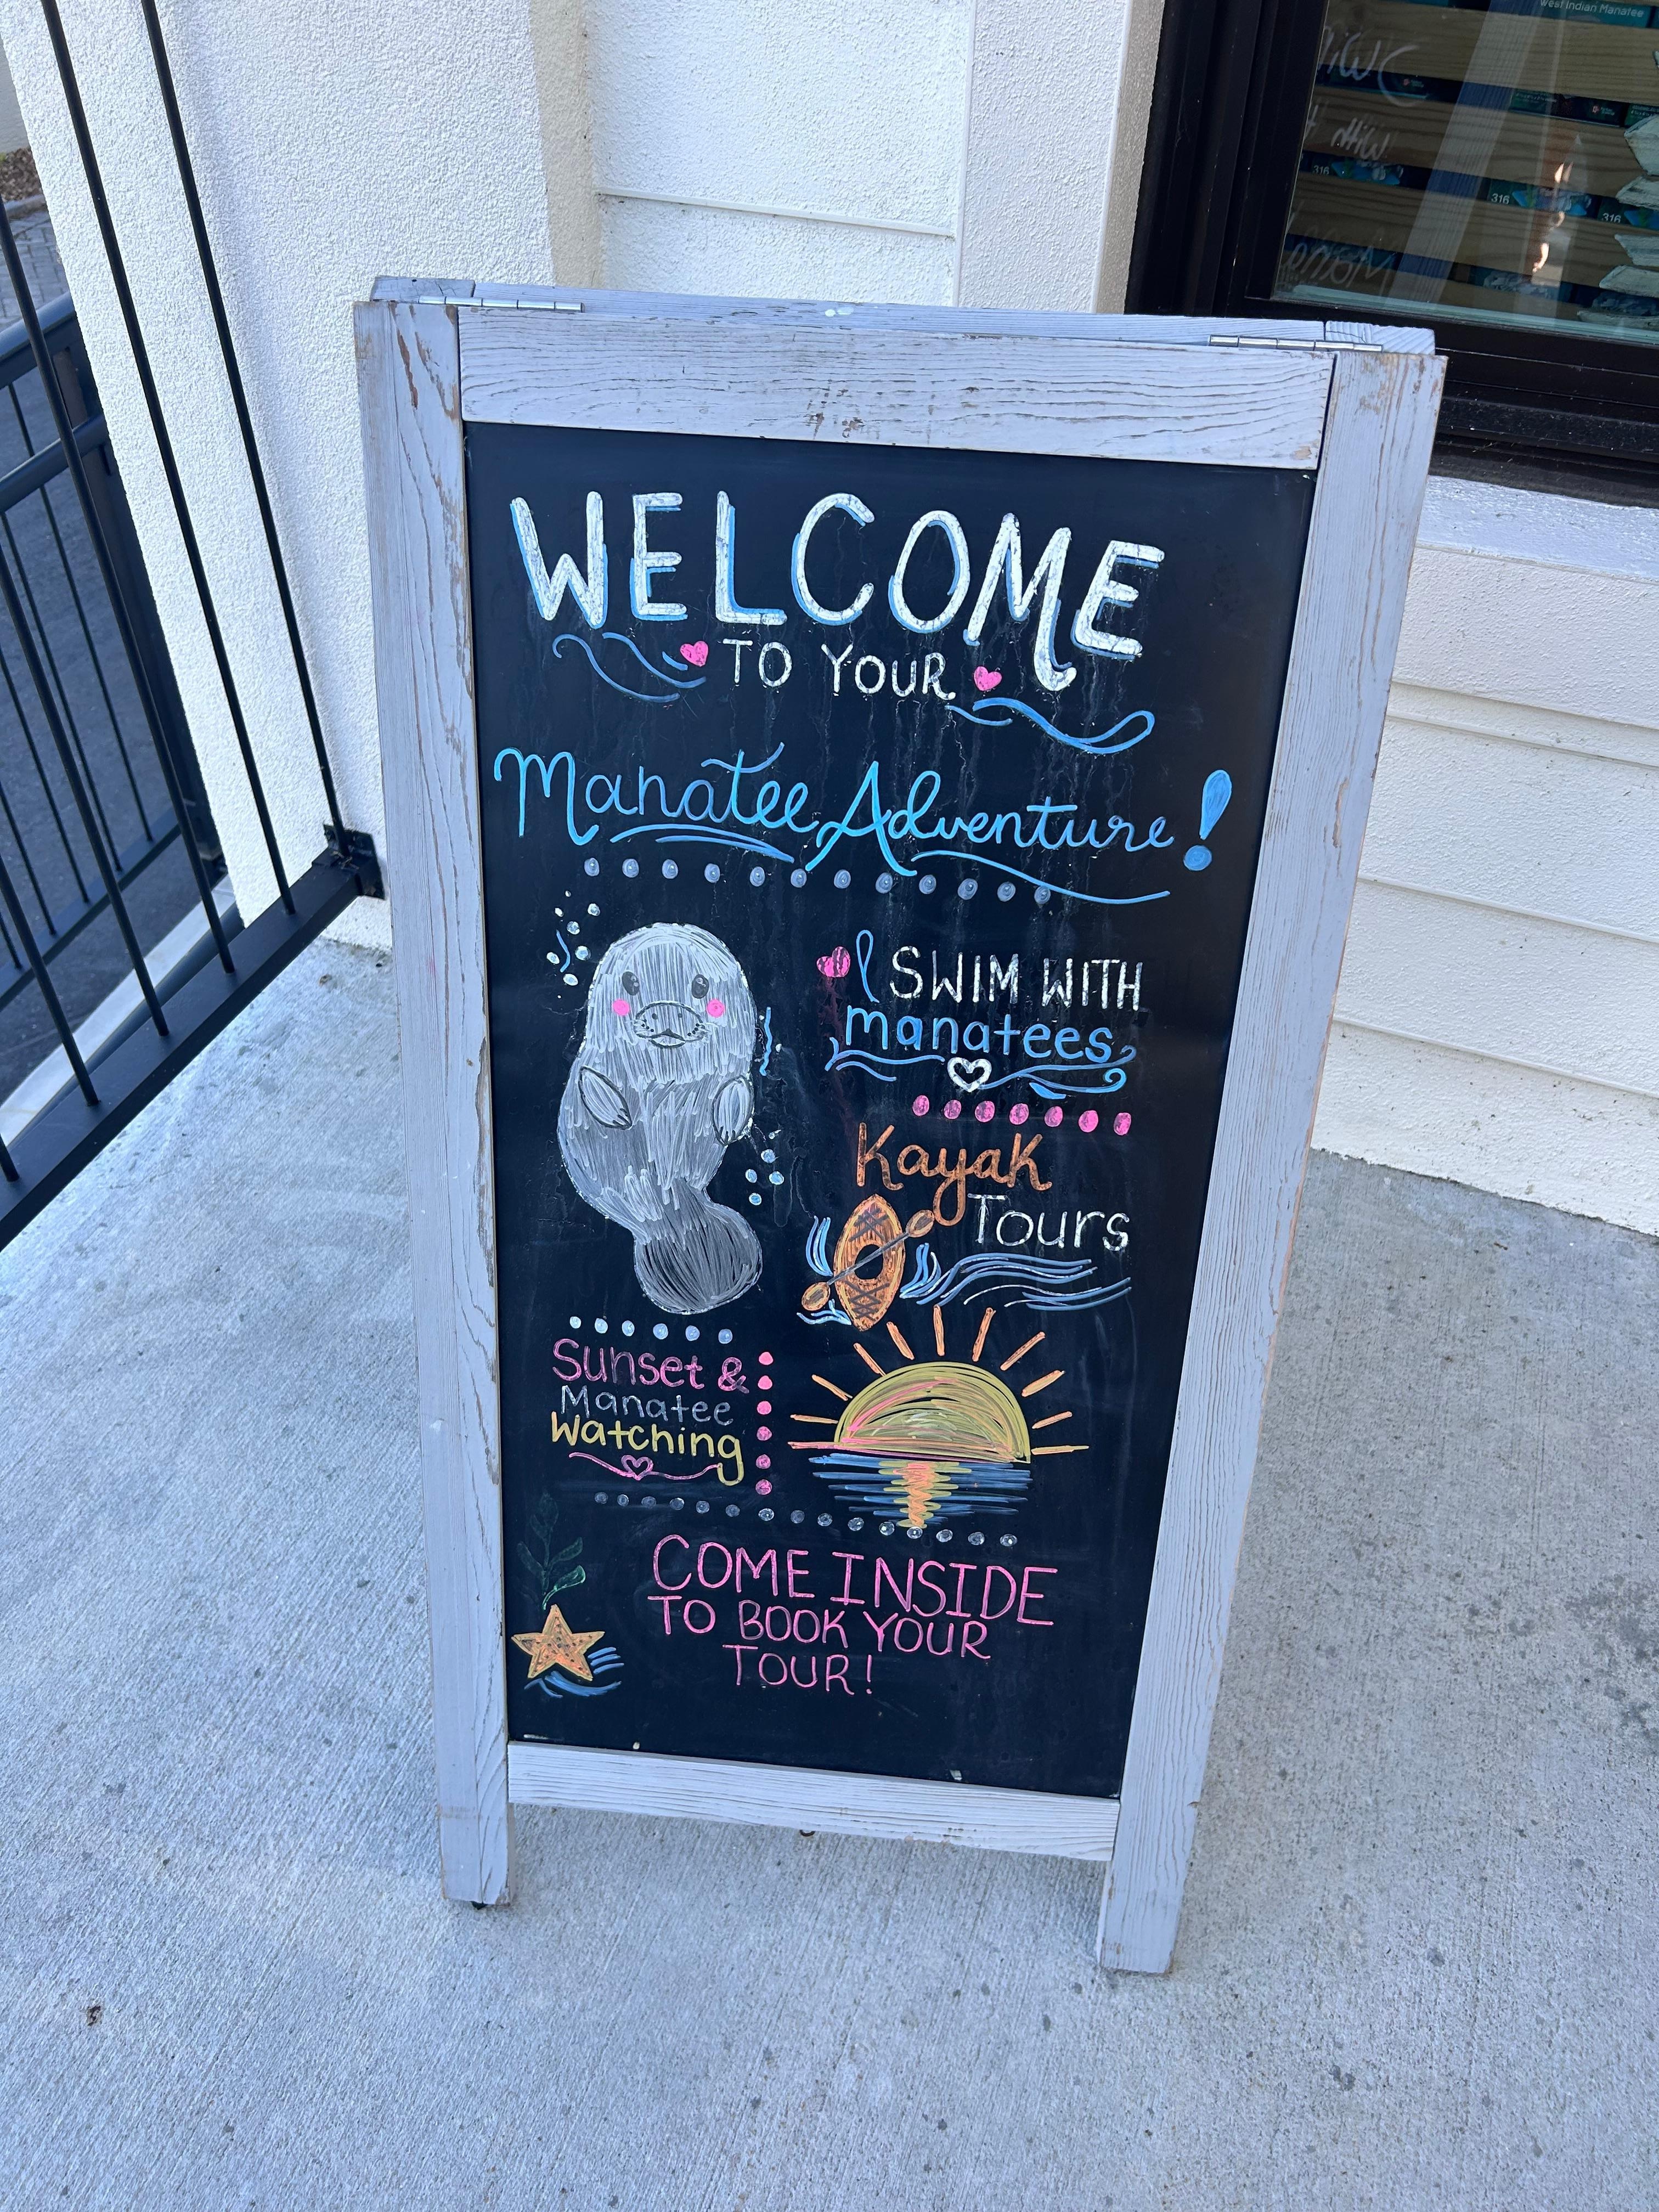 WELCOME
TO YOUR
Manatee Adventure!
SWIM WITH
manatees
Kayak
Tours
Sunset &
Manatee
Watching
COME INSIDE
TO BOOK YOUR
TOUR!
West Indian Manatee
316
316
316